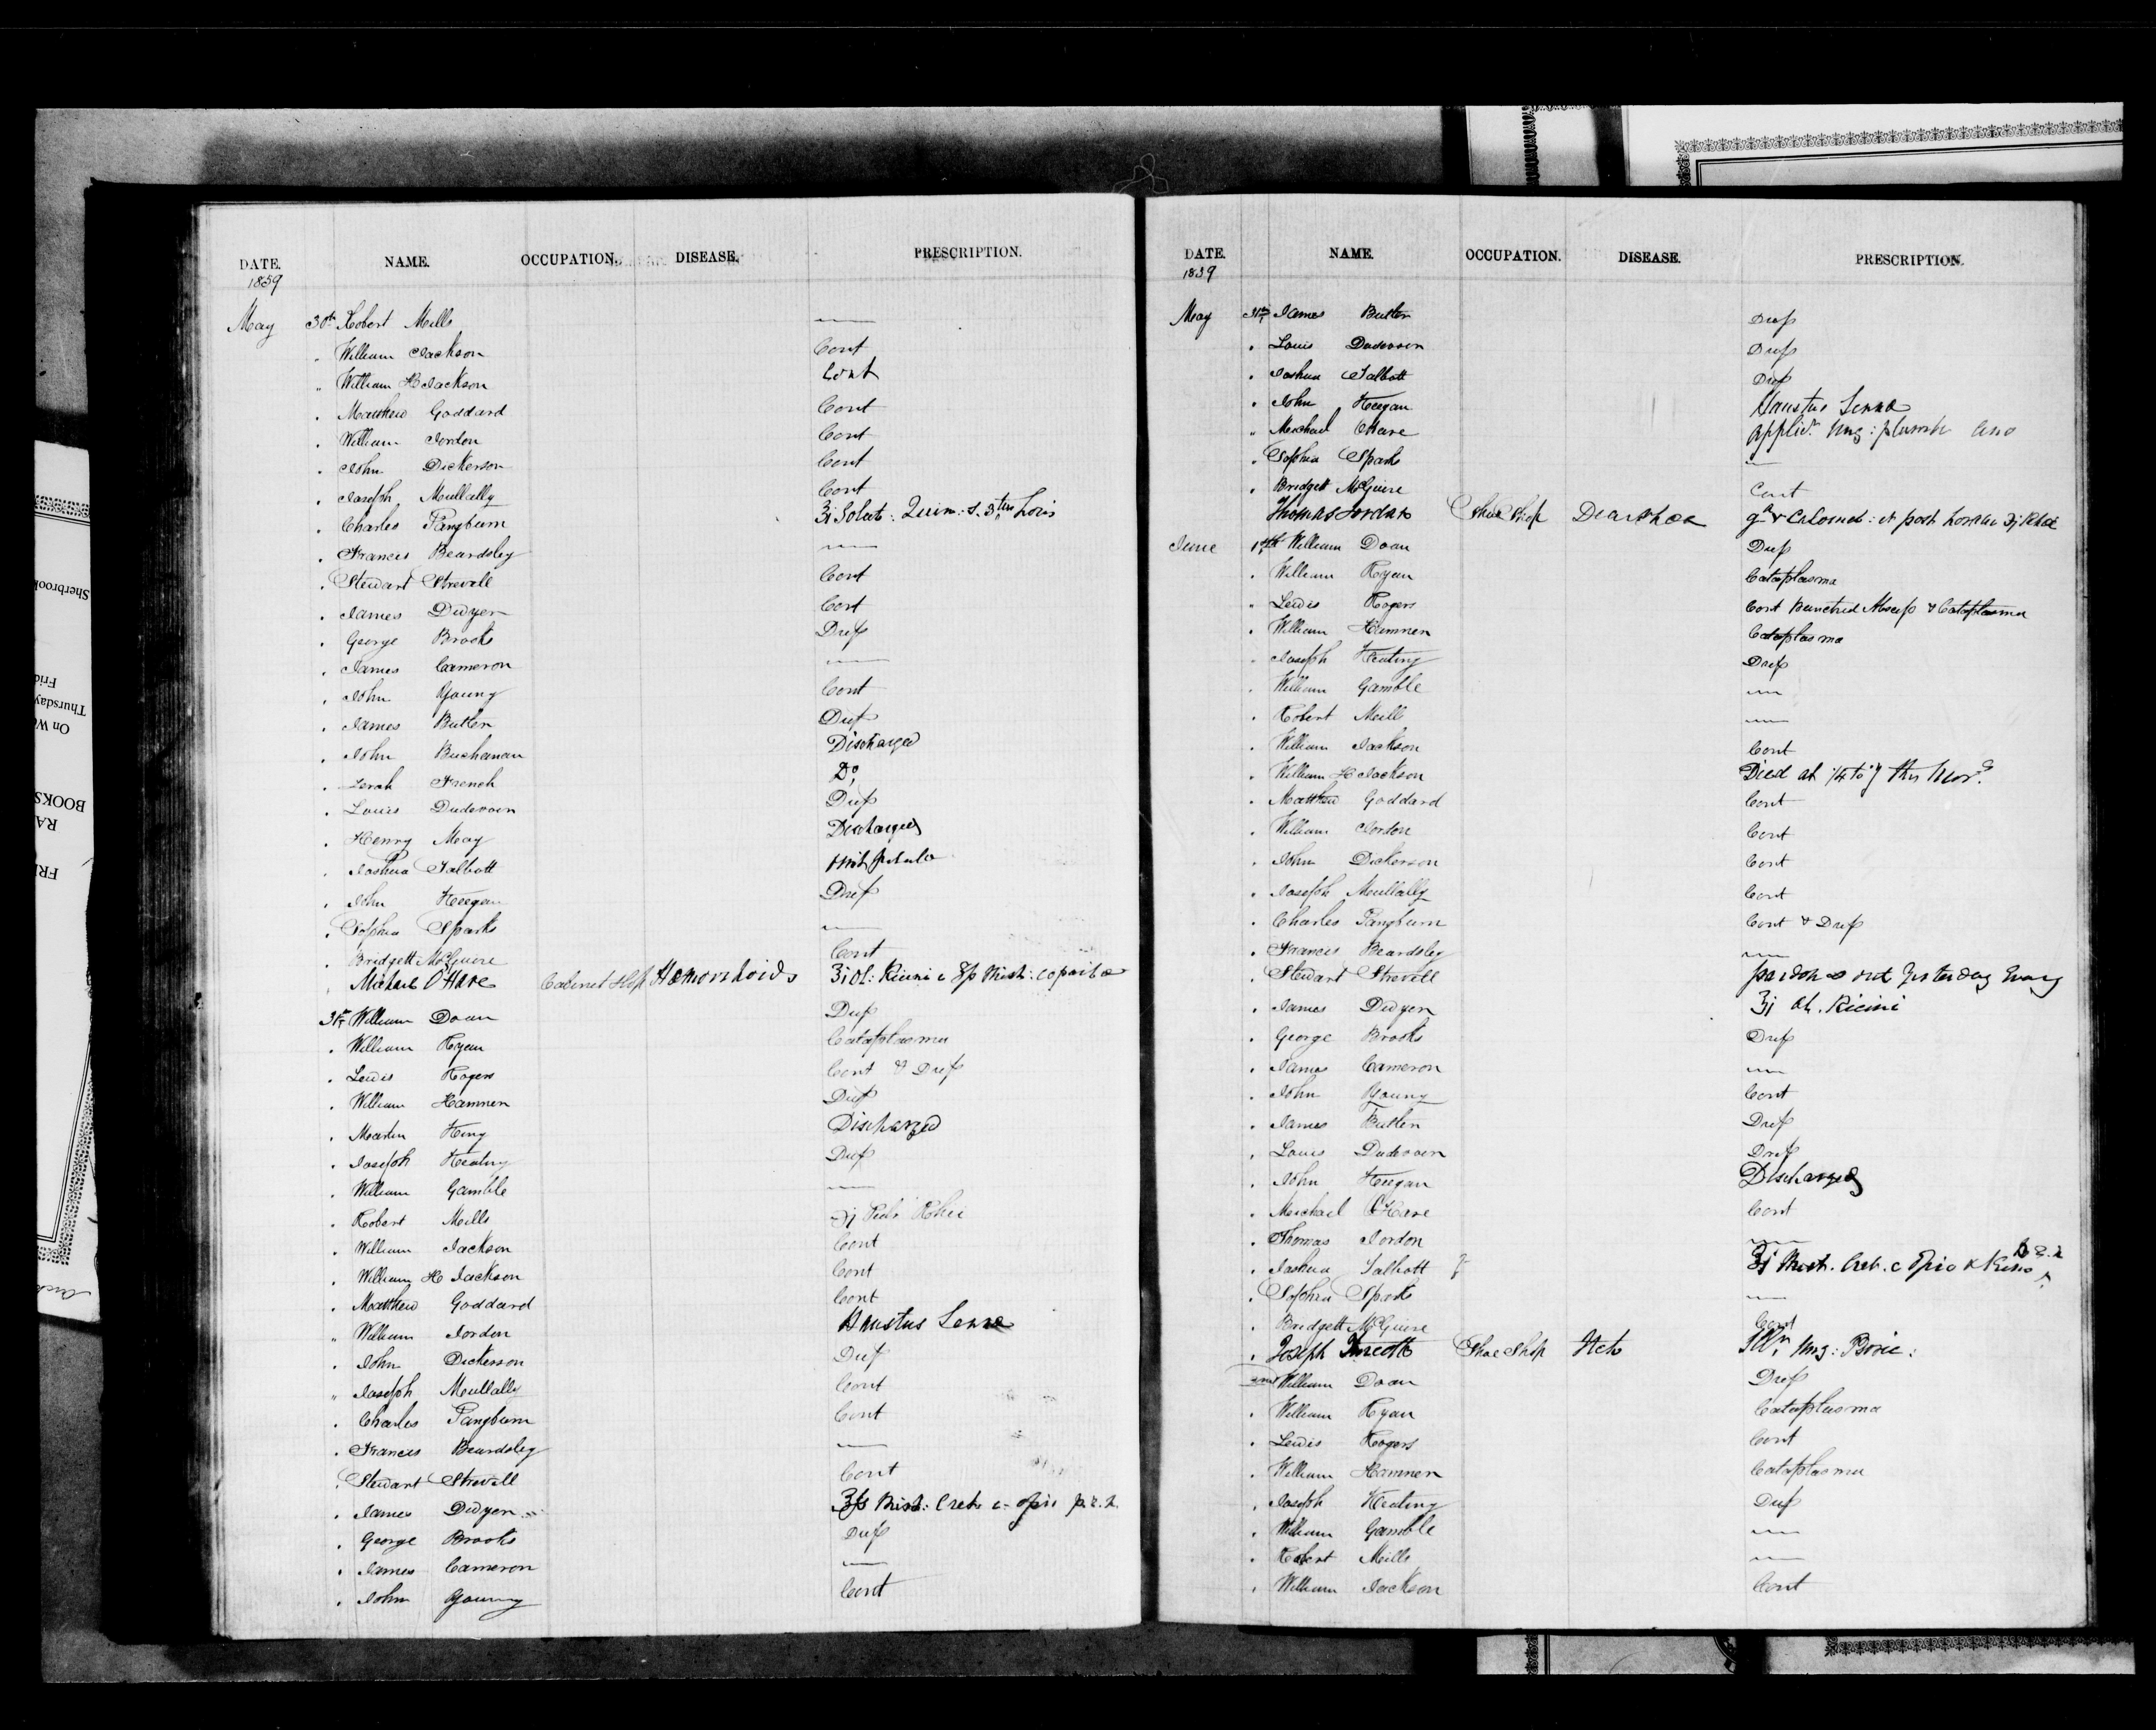 DATE. NAME. OCCUPATION. DISEASE. PRESCRIPTION.
1859
May 30th Robert Mills —
" William Jackson Cont
" William H Jackson Cont
" Matthew Goddard Cont
" William Jordon Cont
" John Dickerson Cont
" Joseph Mullally Cont
" Charles Pangburn ʒj Soluts: Quin: S. 3 ter hois
" Francis Beardsley —
" Stewart Strevell Cont
" James Dwyer Cont
" George Brooks Dresſ
" James Cameron —
" John Young Cont
" James Butler Dresſ
" John Buchanan Discharged
" Zerah French Do
" Louis Dudevoir Dresſ
" Henry May Discharged
" Joshua Talbott
" John Keegan Dresſ
" Sophia Sparks —
" Bridgett McGuire Cont
" Michael O'Hare Cabinet Shop Hemorrhoids ʒj Ol: Ricini c ʒſs Mist: copaiba
31st William Doan Dresſ
" William Ryan Cataplasma
" Lewis Rogers Cont & Dresſ
" William Hamnen Dresſ
" Martin King Discharged
" Joseph Keating Dresſ
" William Gamble —
" Robert Mills ʒj Pulv Rhei
" William Jackson Cont
" William H Jackson Cont
" Matthew Goddard Cont
" William Jordon Haustus Senna
" John Dickerson Dresſ
" Joseph Mullally Cont
" Charles Pangburn Cont
" Francis Beardsley —
" Stewart Strevell Cont
" James Dwyer ʒſs Mist: Creta c opii p.r.n.
" George Brooks Dresſ
" James Cameron —
" John Young Cont
DATE. NAME. OCCUPATION. DISEASE. PRESCRIPTION.
1859
May 31st James Butler Dresſ
" Louis Dudevoir Dresſ
" Joshua Talbott Dresſ
" John Keegan Haustus Senna
" Michael OHare Applicn Ung: plumbi ano
" Sophia Sparks —
" Bridgett McGuire Cont
Thomas Jordan Shoe Shop Diarrhoea gr v Calomel: et post horam ʒj Rhei
June 1st William Doan Dresſ
" William Ryan Cataplasma
" Lewis Rogers Cont Punctred Abscesſ & Cataplasma
" William Hamnen Cataplasma
" Joseph Keating Dresſ
" William Gamble —
" Robert Mills —
" William Jackson Cont
" William H Jackson Died at 1/4 to 7 this Morg
" Matthew Goddard Cont
" William Jordon Cont
" John Dickerson Cont
" Joseph Mullally Cont
" Charles Pangburn Cont & Dresſ
" Francis Beardsley —
" Stewart Strevell pardoned out yesterday Eveng
" James Dwyer ʒj Ol. Ricini
" George Brooks Dresſ
" James Cameron —
" John Young Cont
" James Butler Dresſ
" Louis Dudevoir Dresſ
" John Keegan Discharged
" Michael O'Hare Cont
" Thomas Jordon —
" Joshua Talbott ʒj Mist. Cret. c Opio & Kino p.r.n
" Sophia Sparks —
" Bridgett McGuire Cont
" Joseph Shop Itch Ung:
2nd William Doan Dresſ
" William Ryan Cataplasma
" Lewis Rogers Cont
" William Hamnen Cataplasma
" Joseph Keating Dresſ
" William Gamble —
" Robert Mills —
" William Jackson Cont
Sherbrook
Frid
Thursday
On We
BOOKS
RA
FRE